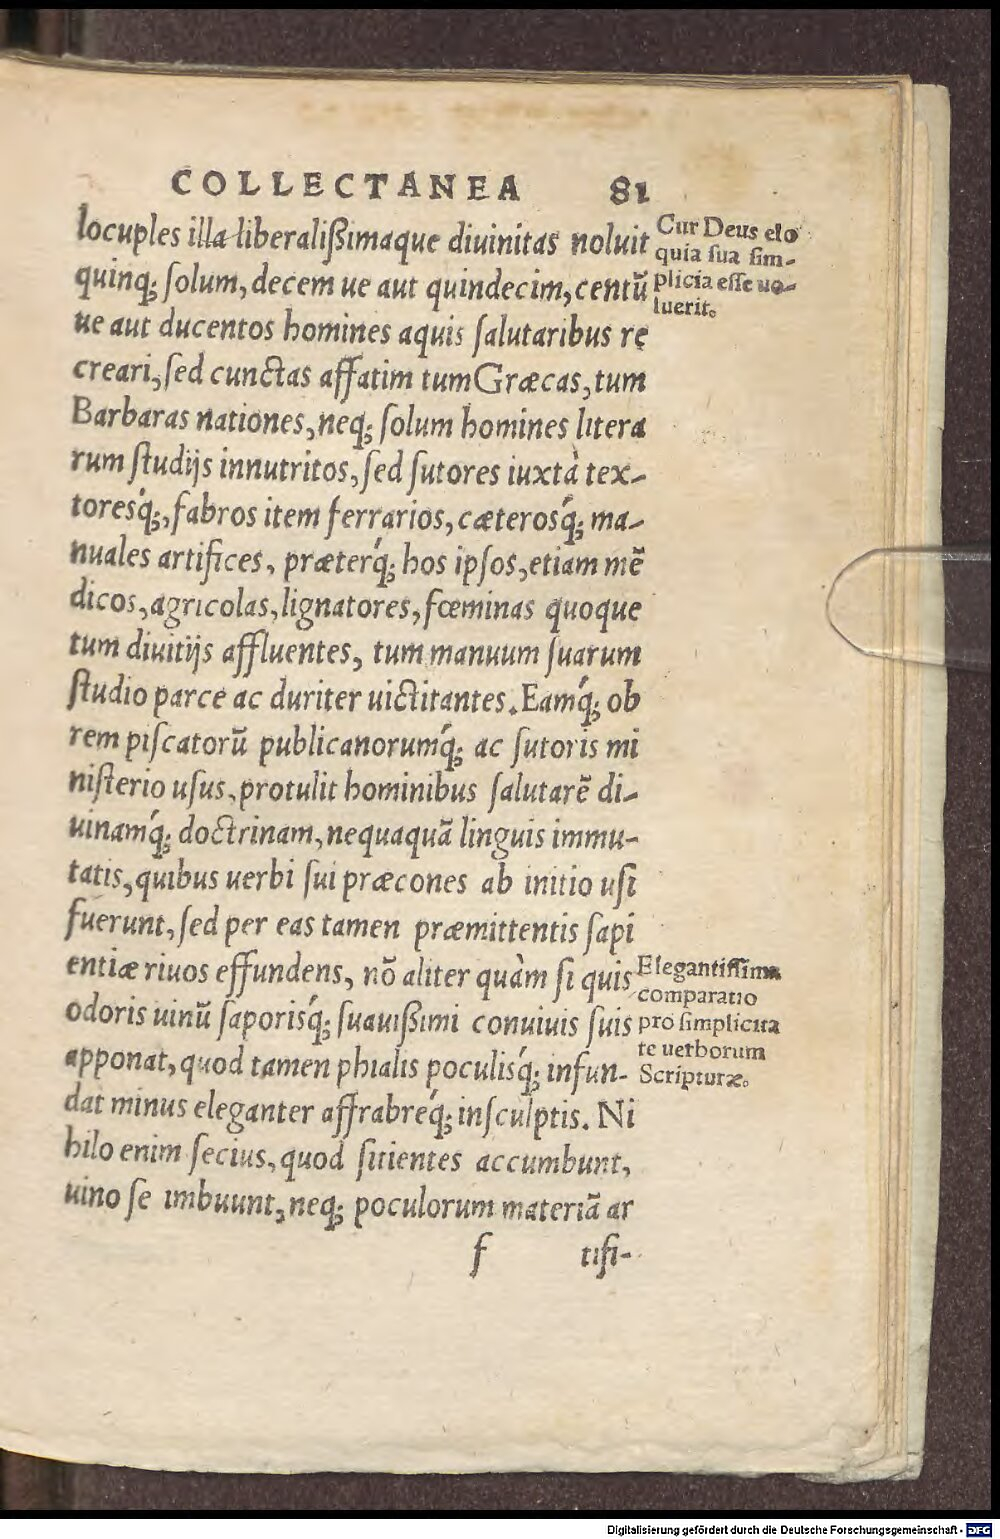 COLLECTANEA 81
locuples illa liberalißimaque diuinitas noluit
quinq; ſolum, decem ue aut quindecim, centũ
ue aut ducentos homines aquis ſalutaribus rę
creari, ſed cunctas affatim tum Græcas, tum
Barbaras nationes, neq; ſolum homines litera
rum ſtudijs innutritos, ſed ſutores iuxtà tex-
toresq́;, fabros item ferrarios, cæterosq́; ma-
nuales artifices, præterq́; hos ipſos, etiam mẽ
dicos, agricolas, lignatores, fœminas quoque
tum diuitijs affluentes, tum manuum ſuarum
ſtudio parce ac duriter uictitantes. Eamq́; ob
rem piſcatorũ publicanorumq́; ac ſutoris mi
niſterio uſus, protulit hominibus ſalutarẽ di-
uinamq́; doctrinam, nequaquã linguis immu-
tatis, quibus uerbi ſui præcones ab initio uſi
fuerunt, ſed per eas tamen præmittentis ſapi
entiæ riuos effundens, nõ aliter quàm ſi quis
odoris uinũ ſaporisq́; ſuauißimi conuiuis ſuis
apponat, quod tamen phialis poculisq́; infun-
dat minus eleganter affrabreq́; inſculptis. Ni
hilo enim ſecius, quod ſitientes accumbunt,
uino ſe imbuunt, neq; poculorum materiã ar
f tifi-
Cur Deus elo
quia ſua ſim-
plicia eſſe uo-
luerit.
Elegantiſſima
comparatio
pro ſimplicita
te uerborum
Scripturæ.
Digitalisierung gefördert durch die Deutsche Forschungsgemeinschaft - DFG